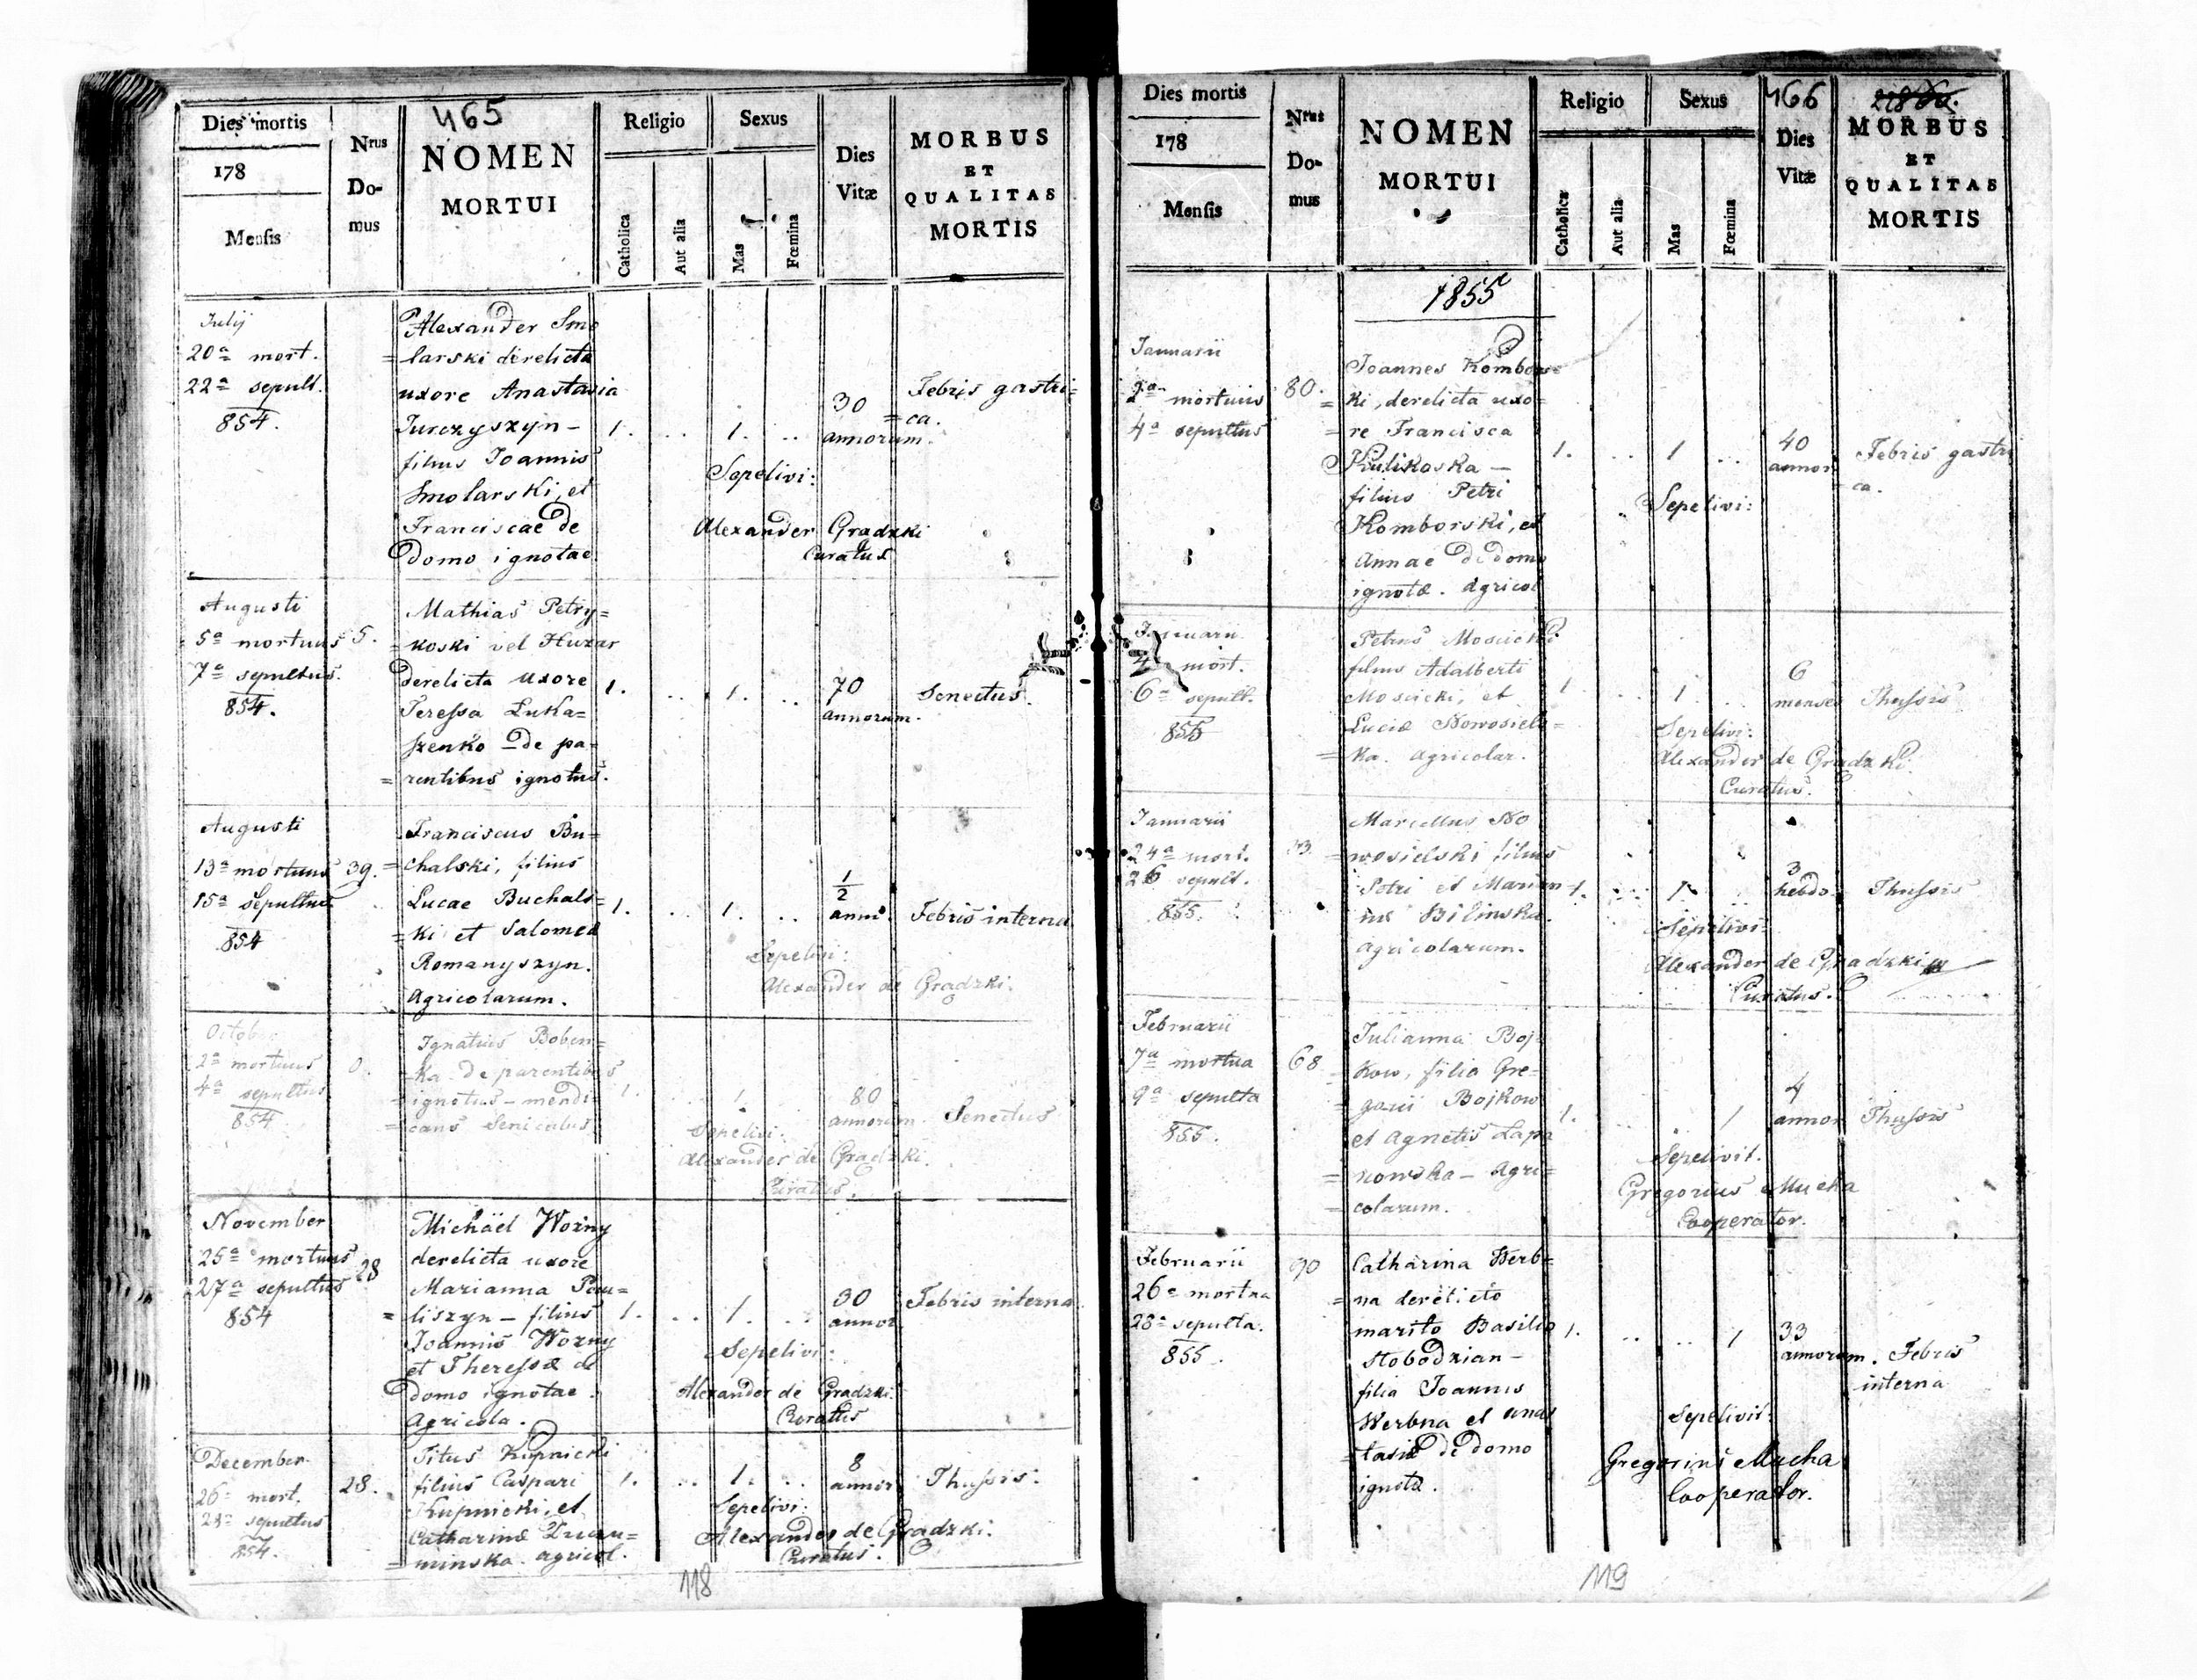 465
Dies mortis
178
Mensis
Nrus
Do-
mus
NOMEN
MORTUI
Religio
Catholica
Aut alia
Sexus
Mas
Fœmina
Dies
Vitæ
MORBUS
ET
QUALITAS
MORTIS
Julij
20a mort.
22a sepult.
854.
Alexander Smo
= larski derelicta
uxore Anastasia
Jurczyszyn –
filius Joannis
Smolarski, et
Franciscae de
domo ignotae
1. .. 1. ..
30
annorum.
Febris gastri=
= ca.
Sepelivi:
Alexander Gradzki
Curatus
Augusti
5a mortuus
7a sepultus.
854.
5.
Mathias Petry=
= koski vel Huzar
derelicta uxore
Teressa Luka=
szenko – de pa=
= rentibus ignotus.
1. .. 1. ..
70
annorum.
Senectus.
Augusti
13a mortuus
15a Sepultus
854
39.
Franciscus Bu=
= chalski, filius
Lucae Buchals=
= ki et Salomea
Romanyszyn.
Agricolarum.
1. .. 1. ..
1/2
anni
Febris interna
Sepelivi:
Alexander de Gradzki.
October
2a mortuus
4a sepultus
854
0.
Ignatius Boben=
= ka. de parentibus
= ignotus – mendi=
= cans Seniculus.
1. 1.
80
annorum.
Senectus
Sepelivi:
Alexander de Gradzki.
Curatus.
November
25a mortuus
27a sepultus
854
28
Michäel Wozny
derelicta uxore
Marianna Pau=
= liszyn – filius
Joannis Wozny
et Theressæ de
domo ignotae.
Agricola.
1. .. 1. ..
30
annor.
Febris interna
Sepelivi:
Alexander de Gradzki.
Curatus
December
26a mort.
28a sepultus
854.
28.
Titus Kupnicki
filius Caspari
Kupnicki, et
Catharinæ
= minska. agricol.
1. .. 1. ..
8
annor.
Thussis.
Sepelivi:
Alexander de Gradzki.
Curatus.
118
466
Dies mortis
178
Mensis
Nrus
Do-
mus
NOMEN
MORTUI
Religio
Catholica
Aut alia
Sexus
Mas
Fœmina
Dies
Vitæ
MORBUS
ET
QUALITAS
MORTIS
1855
Januarii
2a mortuus
4a sepultus
80.
Joannes Kombors=
= ki, derelicta uxo=
= re Francisca
Kulikoska –
filius Petri
Komborski, et
Annae de domo
ignotæ. Agricol
1. .. 1 ..
40
annor
Febris gastri
ca.
Sepelivi:
Januarii
4a mort.
6a sepult.
855
Petrus Moscicki.
filius Adalberti
Moscicki, et
Luciæ Nowosiels=
= ka. Agricolar.
1 .. 1 ..
6
menses
Thussis
Sepelivi:
Alexander de Gradzki.
Curatus.
Januarii
24a mort.
26 sepult.
855.
Marcellus No
= wosielski filius
Petri et Marian
næ Bilinska.
Agricolarum.
1. .. 1. ..
3
hebdo.
Thussis
Sepelivi:
Alexander de Gradzki
Curatus.
Februarii
7a mortua
9a sepulta
855.
68
Julianna Boj=
= kow, filia Gre=
= gorii Bojkow
et Agnetis Lapa
= nowska – Agri=
= colarum.
1. .. 1
4
annor
Thussis
Sepelivit.
Gregorius Mucha
Cooperator.
Februarii
26a mortua
28a sepulta.
855.
90
Catharina Werb=
= na derelicto
marito Basilio
Stobodzian –
filia Joannis
Werbna et Anas
= tasiæ de domo
ignotæ.
1. .. .. 1
33
annorum.
Febris
interna
Sepelivit:
Gregorius Mucha
Cooperator.
119